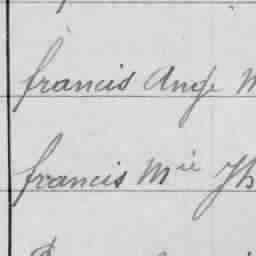 francis Ange M
francis Mie Th